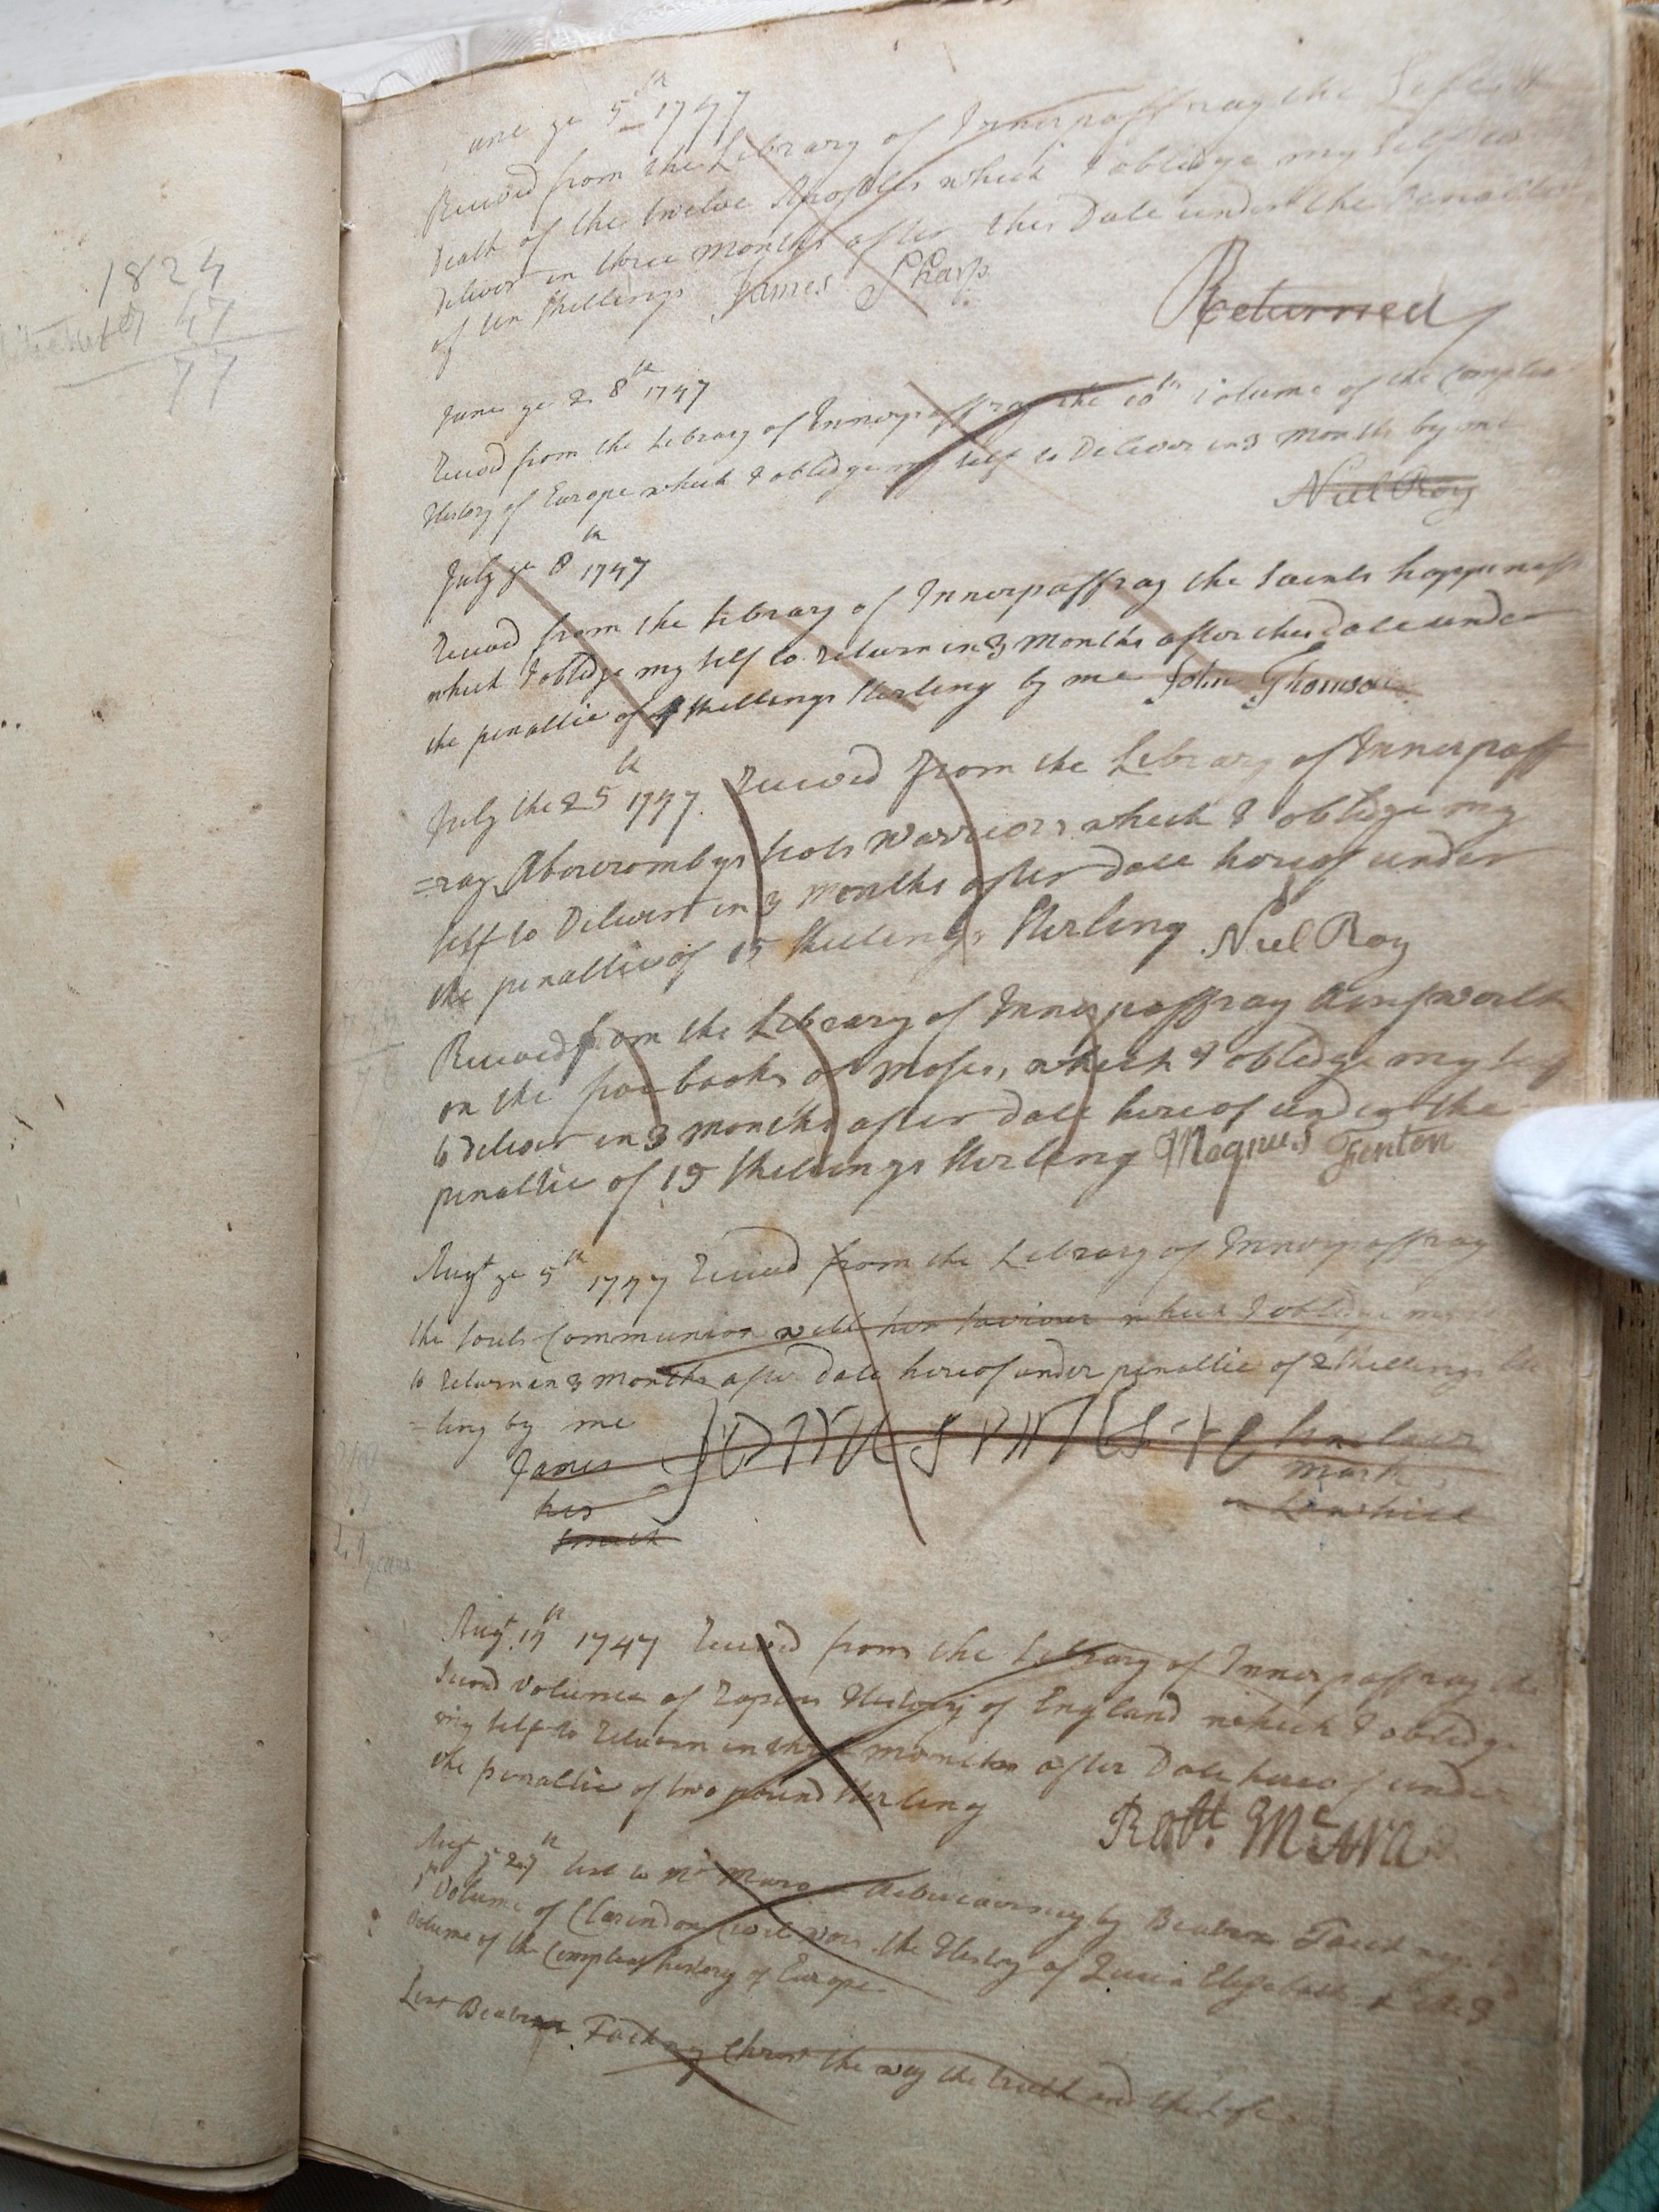 1824
47
77
June ye 5th 1747
Received from the Library of Innerpaffray the Lifes &
Death of the twelve Apostles which I obledge my self to
deliver in three months after this Date under the penaltie
of ten shillings James Sharp
Returned
June ye 8th 1747
Received from the Library of Innerpaffray the 10th volume of the Compleat
History of Europe which I obledge my self to Deliver in 3 month by me
Niel Roy
July ye 8th 1747
Received from the Library of Innerpaffray the Saints happiness
which I obledge my self to return in 3 months after this date under
the penaltie of 4 shillings sterling by me John Thomson
July the 25th 1747. Received from the Library of Innerpaff
=ray Abercrombys Scots warriors which I obledge my
self to Deliver in 3 months after date hereof under
the penaltie of 15 shillings sterling Niel Roy
Received from the Library of Innerpaffray Ainsworth
on the five books of Moses, which I obledge my self
to deliver in 3 months after date hereof under the
penaltie of 15 shillings sterling Magnus Fenton
Augt ye 5th 1747 Received from the Library of Innerpaffray
the souls Communion with her saviour which I obledge my
to return in 3 months after date hereof under penaltie of 2 shillings
=ling by me
James
his
mark
Augt. 17th 1747 Received from the Library of Innerpaffray the
second volume of Rapins History of England which I obledge
my self to return in three months after Date hereof under
the penaltie of two pound sterling
Robt. McAra
Augt ye 27th lent to Mr by Beatrix Faichney
volume of Clarendons Civil wars the History of Queen Elizabeth & the 3d
volume of the Compleat history of Europe
Lent Beatrix Faichney Christ the way the truth and the Life